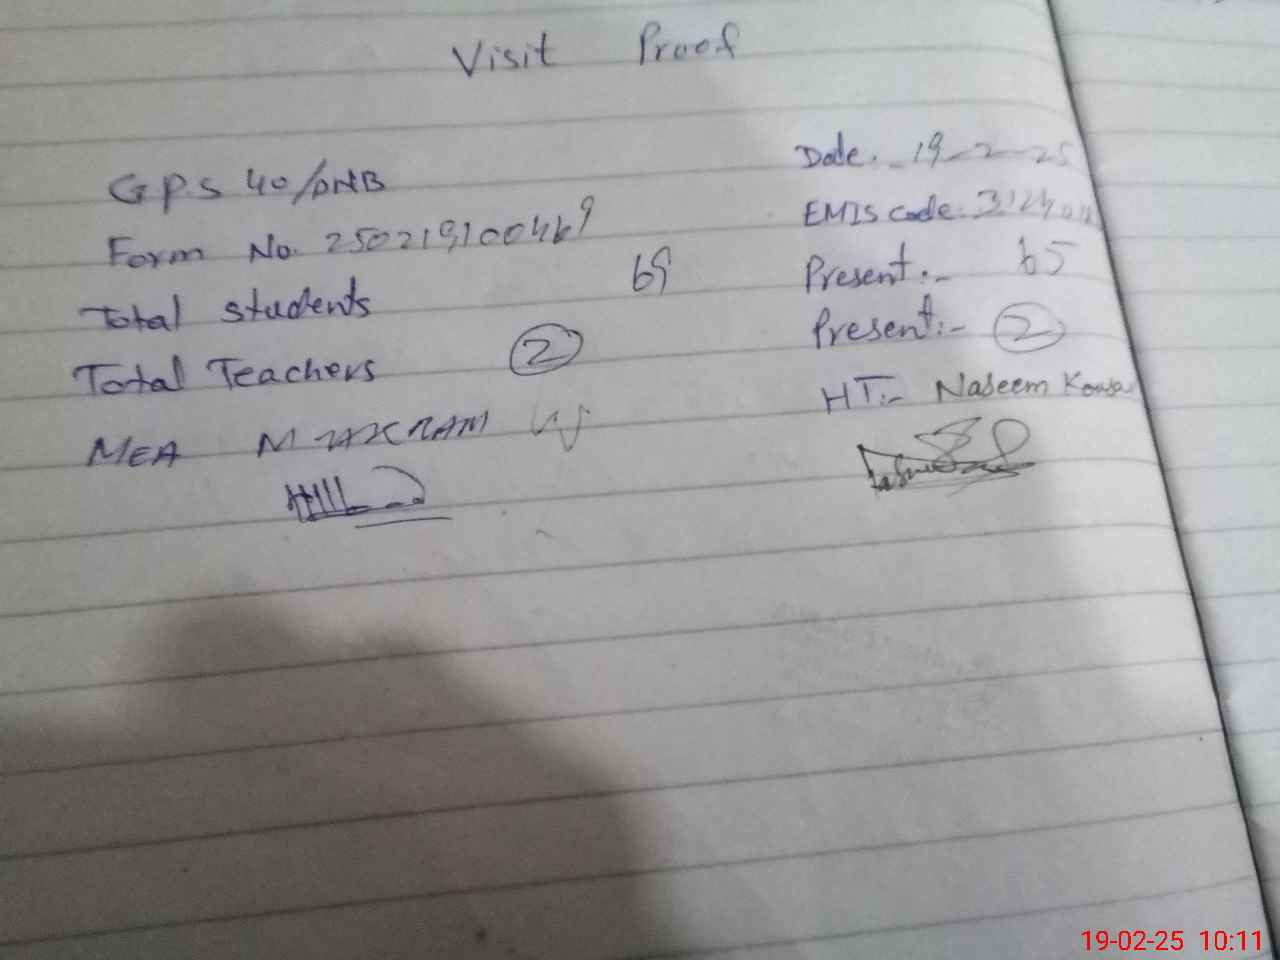 Visit Proof
Date:- 19-2-25
GPS 40/DNB
EMIS code:
Form No. 250219100469
Present:- 65
Total students 69
Present:- 2
Total Teachers 2
HT:- Naseem Kousar
MEA M AKRAM
19-02-25 10:11